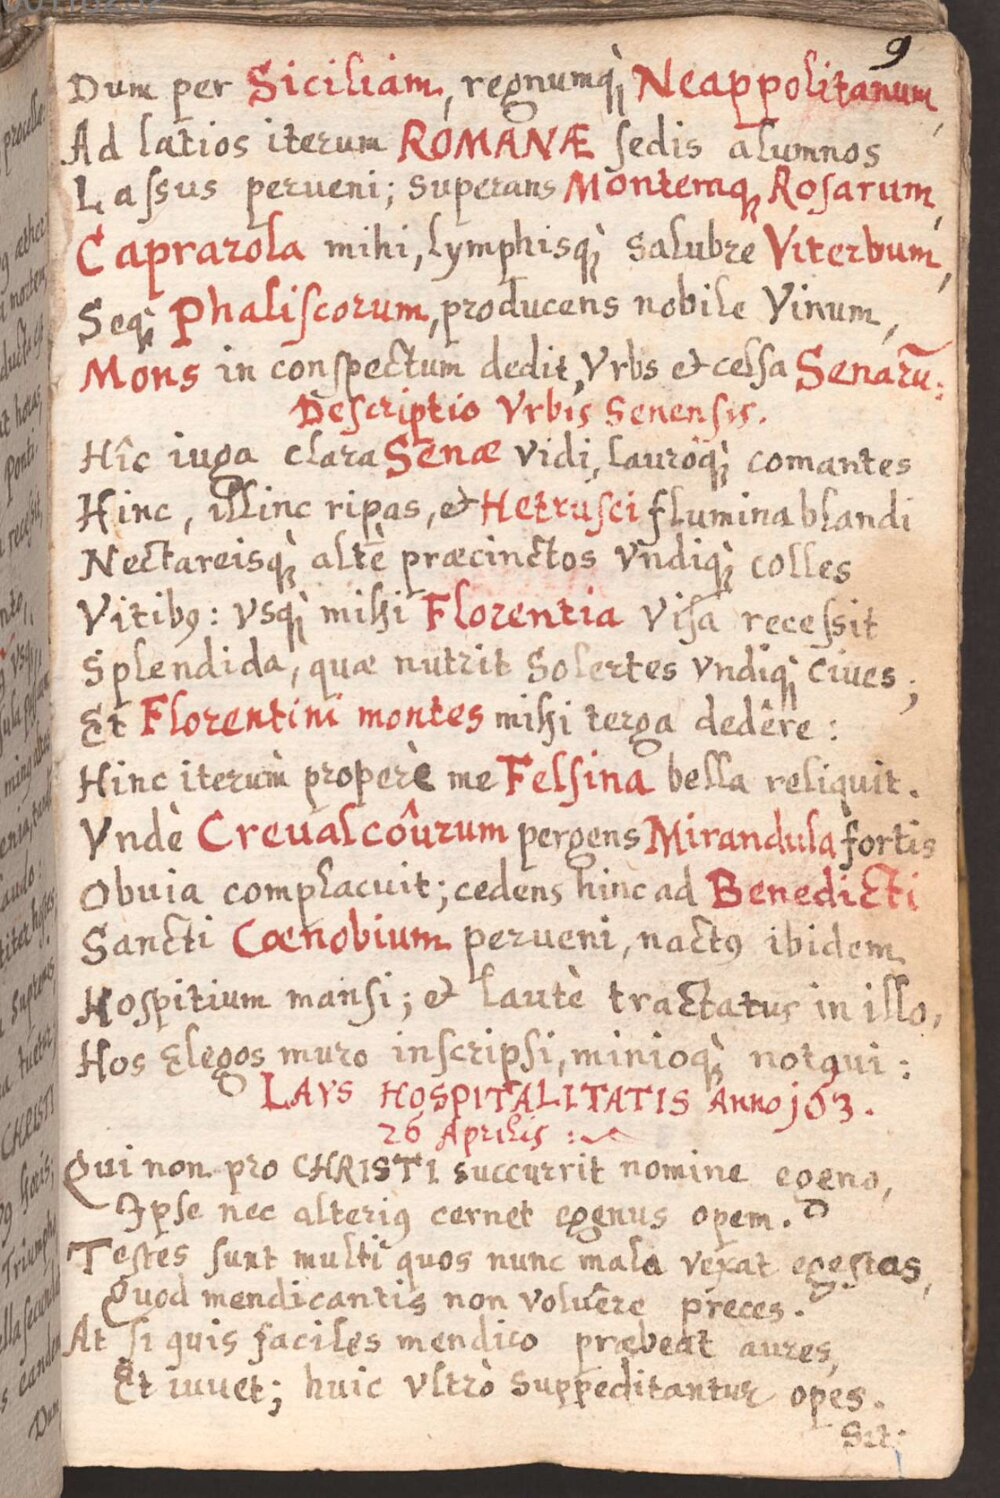 9
Dum per Siciliam, regnumq̀ꝫ Neappolitanum,
Ad latios iterum ROMANÆ ſedis alumnos
Laſsus perueni; superans Montemqꝫ Roſarum,
Caprarola mihi, lymphisq̀ꝫ salubre Viterbum,
Seqꝫ Phaliſcorum, producens nobile Vinum,
Mons in conſpectum dedit, Vrbs et celſa Senarū:
Deſcriptio Vrbis Senenſis.
Hîc iuga clara Senæ vidi, lauróq̀ꝫ comantes
Hinc, illinc ripas, et Hetruſci flumina blandi
Nectareisq̀ꝫ altè præcinctos vndiq̀ꝫ colles
Vitibꝰ: vsq̀ꝫ mihi Florentia viſa receſsit
Splendida, quæ nutrit Solertes vndiq̀ꝫ ciues;
Et Florentini montes mihi terga dedêre:
Hinc iterùm properè me Felſina bella reliquit.
Vndè Creualcôurum pergens Mirandula fortis
Obuia complacuit; cedens hinc ad Benedicti
Sancti Cœnobium perueni, nactꝰ ibidem
Hospitium manſi; et lautè tractatus in illo,
Hos Elegos muro inſcripſi, minioq̀ꝫ notaui:
LAVS HOSPITALITATIS Anno 163.
26 Aprilis :~
Qui non pro CHRISTI succurrit nomine egeno,
Ipse nec alteriꝰ cernet egenus opem.
Testes ſunt multi quos nunc mala vexat egestas,
Quod mendicantis non voluêre preces.
At ſi quis faciles mendico præbeat aures,
Et iuuet; huic vltrò suppeditantur opes.
Sit: